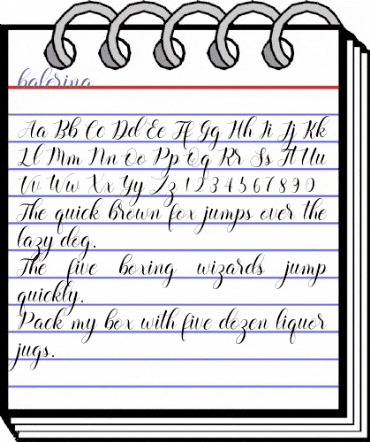 balerina
Aa Bb Cc Dd Ee Ff Gg Hh Ii Jj Kk
Ll Mm Nn Oo Pp Qq Rr Ss Tt Uu
Vv Ww Xx Yy Zz 1 2 3 4 5 6 7 8 9 0
The quick brown fox jumps over the
lazy dog.
The five boxing wizards jump
quickly.
Pack my box with five dozen liquor
jugs.